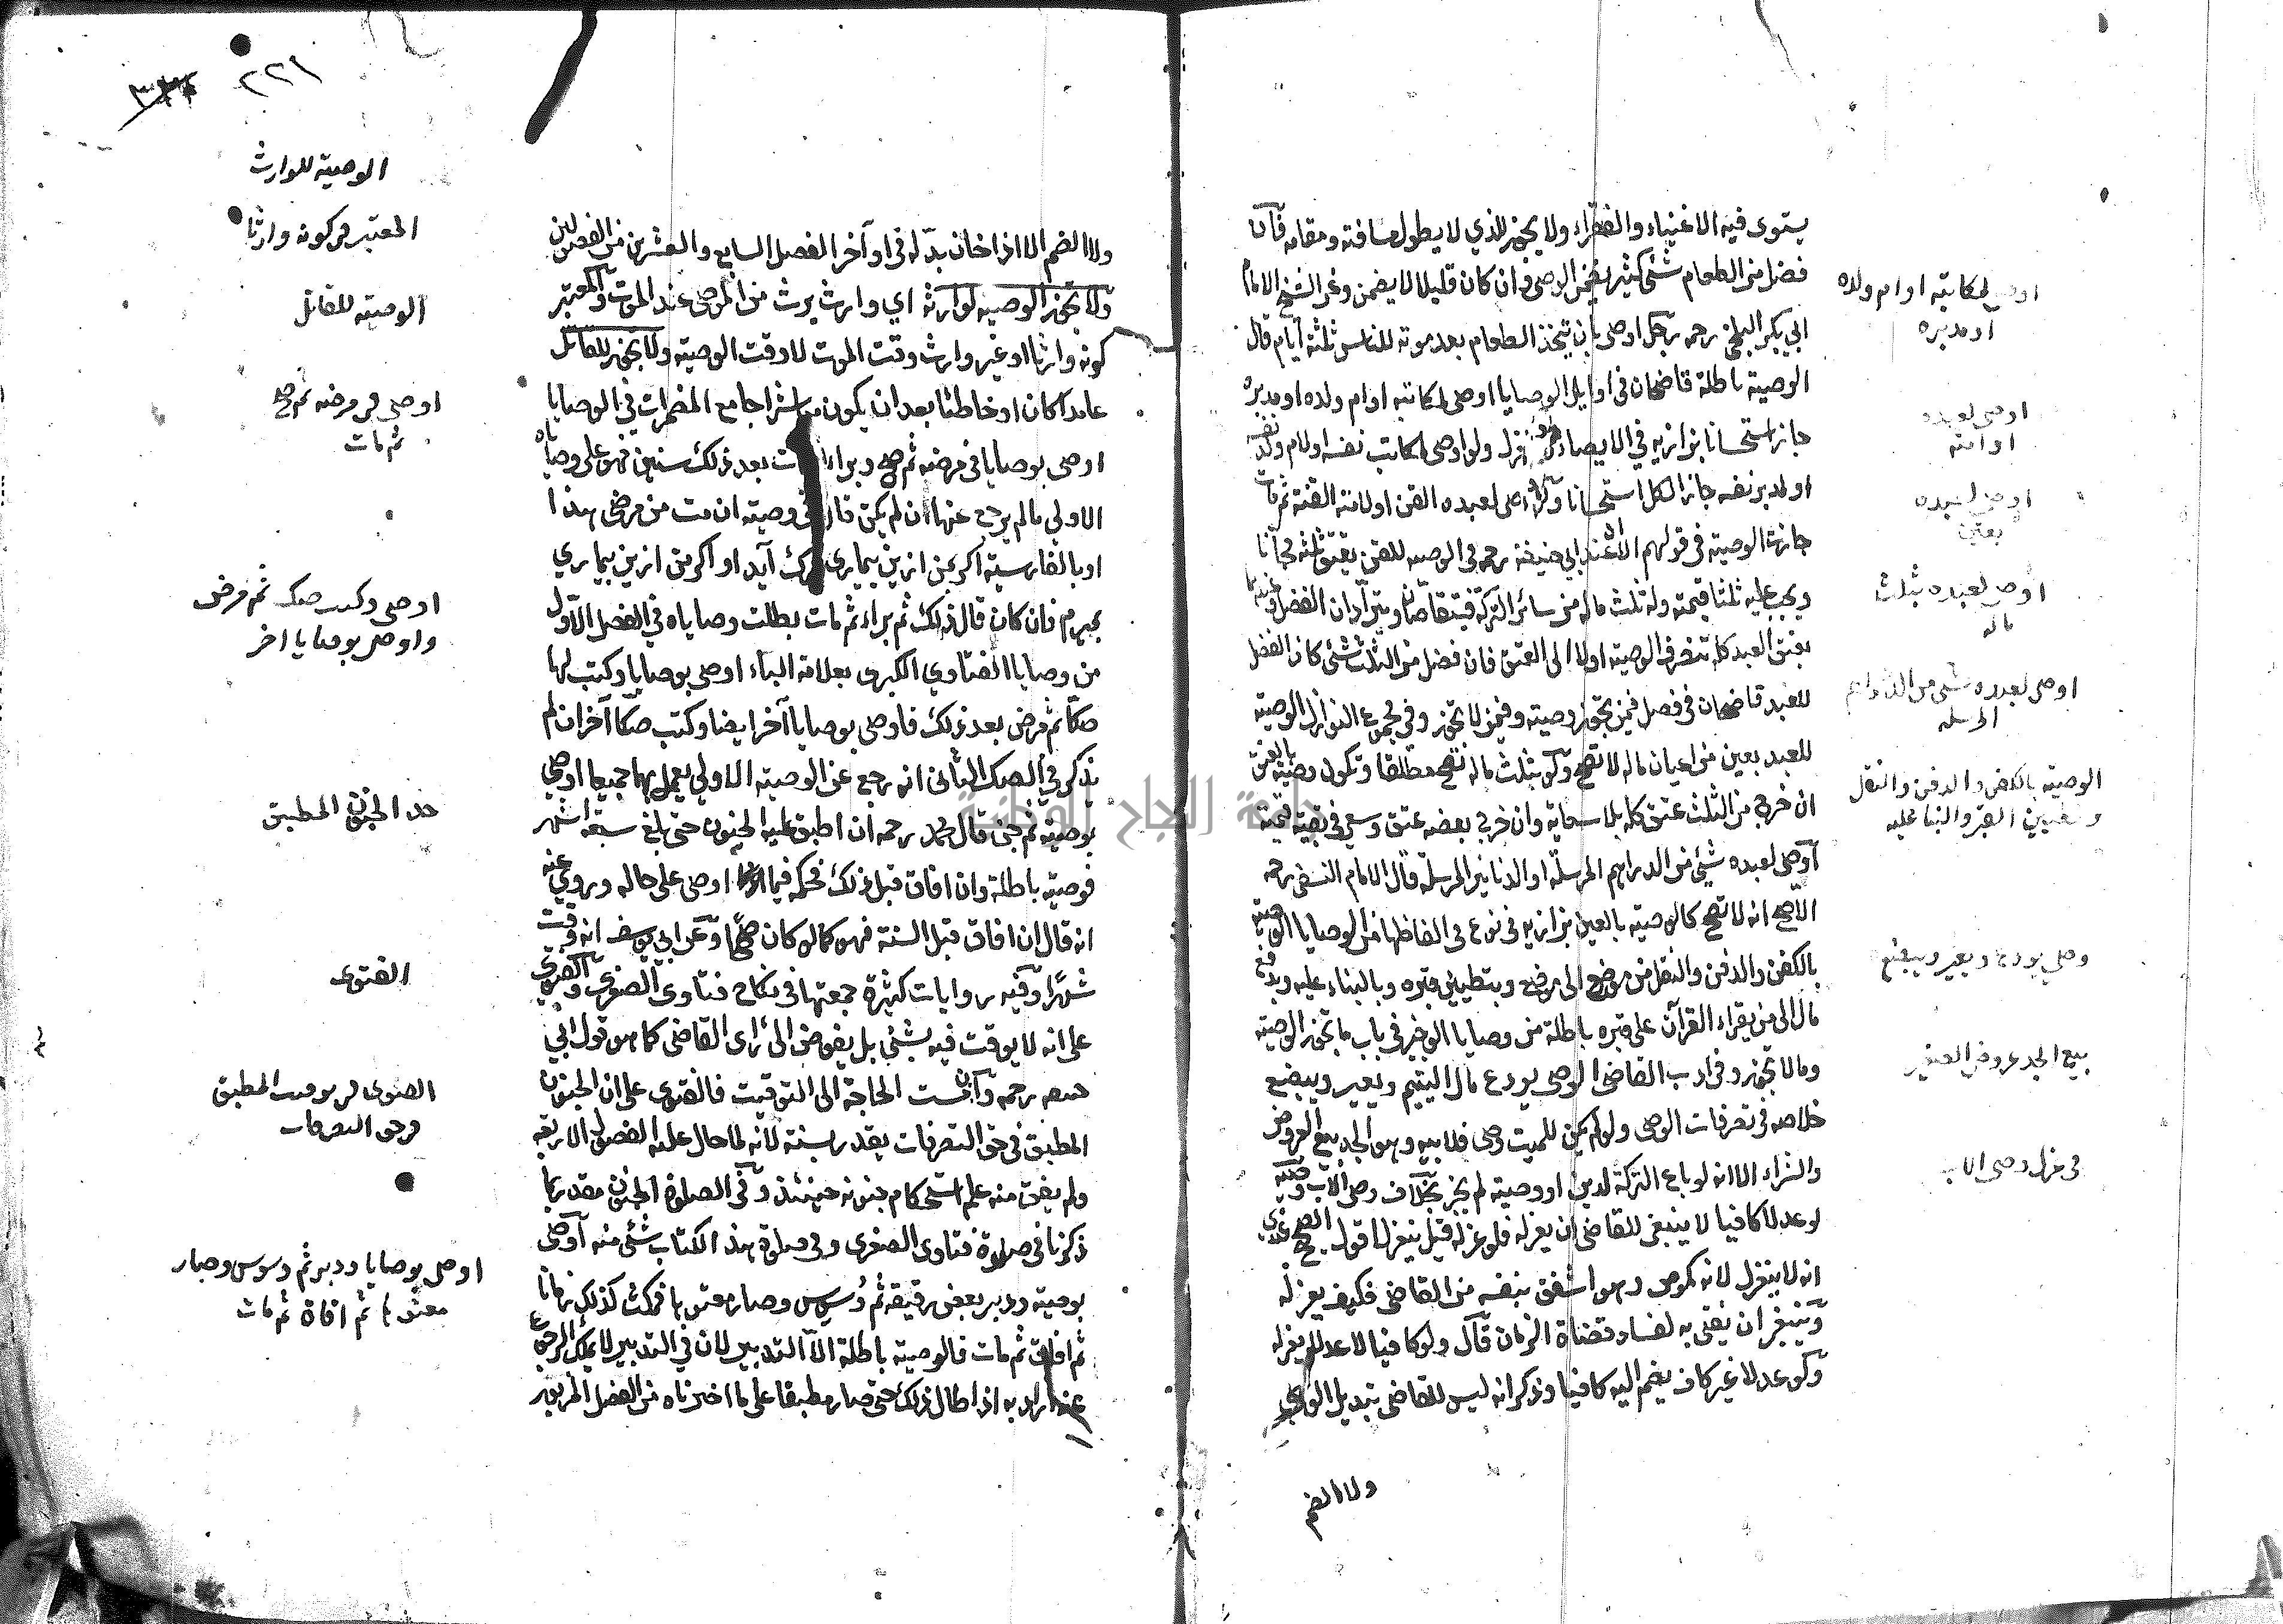 يستوى فيه الاغنياء والفقراء ولا يجوز للذي لا يطول مسافته ومقامه فآن
فضل من الطعام شئ كثير يضمن الوصى وان كان قليلا لا يضمن وعن الشيخ الامام
ابي بكر البلخي رحمه رجل اوصى بان يتخذ الطعام بعد موته للناس ثلثة أيام قال
الوصية باطلة قاضيخان في اوايل الوصايا اوصى لمكاتبه او ام ولده او مدبره
جاز استحسانا بزازيه في الايصاء ولو اوصى لمكاتب نفسه او لام ولد نفسه
او لمدبر نفسه جاز الكل استحسانا ولو اوصى لعبده القن او لامته القنة ثم مات
جازت الوصية في قولهم الا ان عند ابي حنيفة رحمه في الوصيه للقن يعتق ثلثه مجانا
ويجب عليه ثلثا قيمته وله ثلث ماله من سائر التركة فيتقاصان ويترادان الفضل وعندهما
يعتق العبد كله تصرف الوصية اولا الى العتق فان فضل من الثلث شئ كان الفضل
للعبد قاضيخان في فصل فيمن يجوز وصيته وفيمن لا تجوز وفي مجموع النوازل الوصية
للعبد بعين من اعيان ماله لا تصح ولو بثلث ماله تصح مطلقا وتكون وصية بالعتق
ان خرج من الثلث عتق كله بلا سعاية وان خرج بعضه عتق وسعى في بقية قيمته
آوصى لعبده شئ من الدراهم المرسلة او الدنانير المرسلة قال الامام النسفى رحمه
الآصح انه لا تصح كالوصية بالعين بزازيه في نوع في الفاظها من الوصايا الوصية
بالكفن والدفن والنقل من موضع الى موضع وبتطيين قبره وبالبناء عليه وبدفع
مال الى من يقراء القرآن على قبره باطلة من وصايا الوجيز في باب ما تجوز الوصية
وما لا تجوز وفي ادب القاضى الوصى يودع مال اليتيم ويعير ويبضع
خلاصه في تصرفات الوصى ولو لم يكن للميت وصى فلابيه وهو الجد بيع العروض
والشراء الا انه لو باع التركة لدين او وصية لم يجز بخلاف وصى الآب وصيه
لو عدلا كافيا لا ينبغى للقاضى ان يعزله فلو عزله قيل ينعزل اقول الصحيح عندي
انه لا ينعزل لانه كموص وهو اشفق بنفسه من القاضى فكيف يعزله
وينبغي ان يفتى به لفساد قضاة الزمان قآل ولو كافيا لا عدلا يعزله
ولو عدلا غير كاف يضم اليه كافيا وذكر انه ليس للقاضى تبديل الوصى
ولا الضم
اوصى لمكاتبه او ام ولده
او مدبره
اوصى لعبده
او امته
اوصى لعبده
بعين
اوصى لعبده بثلث
ماله
اوصى لعبده شئ من الدراهم
المرسله
الوصية بالكفن والدفن والنقل
وتطيين القبر والبنا عليه
وصي يودع ويعير ويبضع
بيع الجد عروض الصغير
في عزل وصى الاب
جامعة النجاح الوطنية
٢٢١
ولا الضم الا اذا خان بدله في او آخر الفصل السابع والعشرين من الفصولين
ولا تجوز الوصيه لوارثه اي وارث يرث من الموصى عند الموت والمعتبر
كونه وارثا او غير وارث وقت الموت لا وقت الوصية ولا تجوز للقاتل
عامدا كان او خاطئا بعد ان يكون مباشرا جامع المضمرات في الوصايا
اوصى بوصايا في مرضه ثم صح وبراء بعد ذلك سنين فهو على وصاياه
الاولى ما لم يرجع عنها ان لم يكن قال في وصيته ان مت من مرضى هذا
او بالفارسية اكر من ازين بيماري مرك آيد او اكر من ازين بيماري
بميرم فان كان قال ذلك ثم براء ثم مات بطلت وصاياه في الفصل الآول
من وصايا الفتاوي الكبرى بعلامة الباء اوصى بوصايا وكتب لها
صكا ثم مرض بعد ذلك فاوصى بوصايا آخر ايضا وكتب صكا آخر ان لم
يذكر في الصك الثانى انه رجع عن الوصية الاولى يعمل بهما جميعا اوصى
بوصية ثم جن قال محمد رحمه ان اطبق عليه الجنون حتى بلغ ستة اشهر
فوصيته باطلة وان افاق قبل ذلك فحكمه فيما اوصى على حاله وروي عنه
انه قال ان افاق قبل السنة فهو كما لو كان صحيحا وعن ابي يوسف انه وقت
شهرا وفيه روايات كثيرة جمعتها في نكاح فتاوى الصغرى والفتوى
على انه لا يوقت فيه بشئ بل يفوض الى رأى القاضى كما هو قول ابي
حنيفه رحمه وآن مست الحاجة الى التوقيت فالفتوى على ان الجنون
المطبق في حق التصرفات يقدر بسنة لانه لما حال عليه الفصول الاربعه
ولم يفق منه علم استحكام جنونه حينئذ وفي الصلوة الجنون مقدر بما
ذكرنا في صلوة فتاوى الصغرى وفي صلوة هذا الكتاب شئ منه آوصى
بوصية ودبر بعض رقيقه ثم وسوس وصار معتوها فمكث كذلك زمانا
ثم افاق ثم مات فالوصية باطلة الآ التدبير لان في التدبير لا يملك الرجوع
عنه اراد به اذا طال ذلك حتى صار مطبقا على ما اخبرناه من الفصل المزبور
الوصية للوارث
المعتبر في كونه وارثا
الوصيته للقاتل
اوصى في مرضه ثم صح
ثم مات
اوصى وكتب صك ثم مرض
واوصى بوصايا اخر
حد الجنون المطبق
الفتوى
الفتوى في توقيت المطبق
في حق التصرفات
اوصى بوصايا ودبر ثم وسوس وصار
معتوها ثم افاق ثم مات